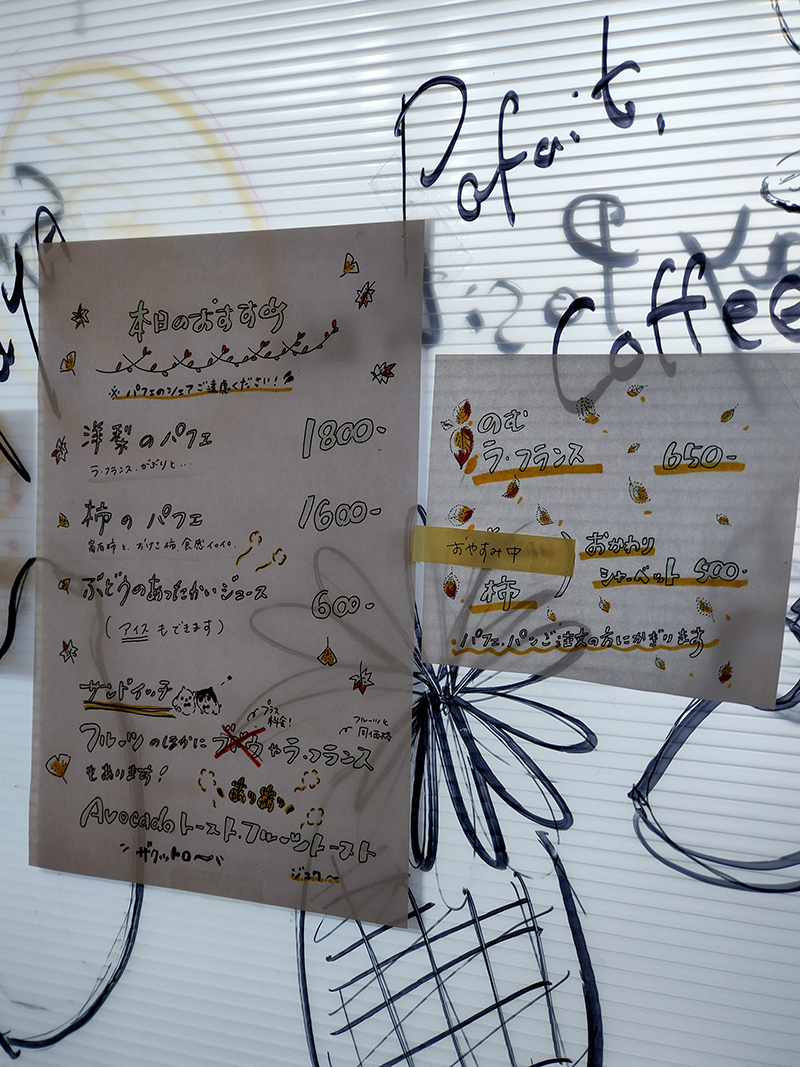 Pafait,
Coffee
本日のおすすめ
※ パフェのシェアご遠慮ください!
洋梨のパフェ 1800-
ラ・フランス、がぶりと...
柿のパフェ 1600-
ぶどうのあったかいジュース
600-
(アイスもできます)
サンドイッチ
プラス料金!
フルーツと同価格
フルーツのほかにブドウやラ・フランス
もあります!
あつあつ
Avocadoトースト・フルーツトースト
ザクットロ〜
ジュワ〜
のむ
ラ・フランス 650-
おやすみ中
おかわり
柿
シャーベット 500-
パフェ、パンご注文の方にかぎります